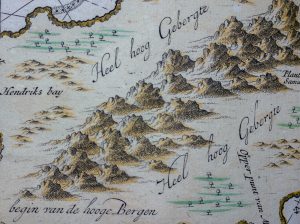 Heel hoog Gebergte
Hendriks bay
Heel hoog Gebergte
begin van de hooge Bergen